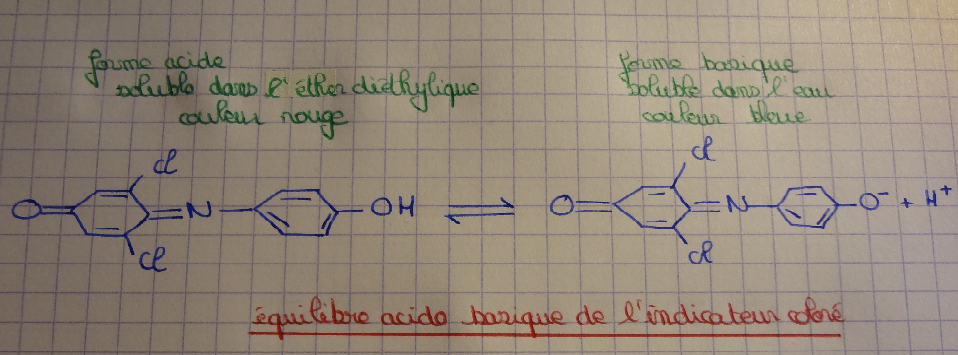 forme acide
soluble dans l'éther diéthylique
couleur rouge
forme basique
soluble dans l'eau
couleur bleue
Cl
O N OH
Cl
Cl
O N O⁻ + H⁺
Cl
équilibre acido basique de l'indicateur coloré